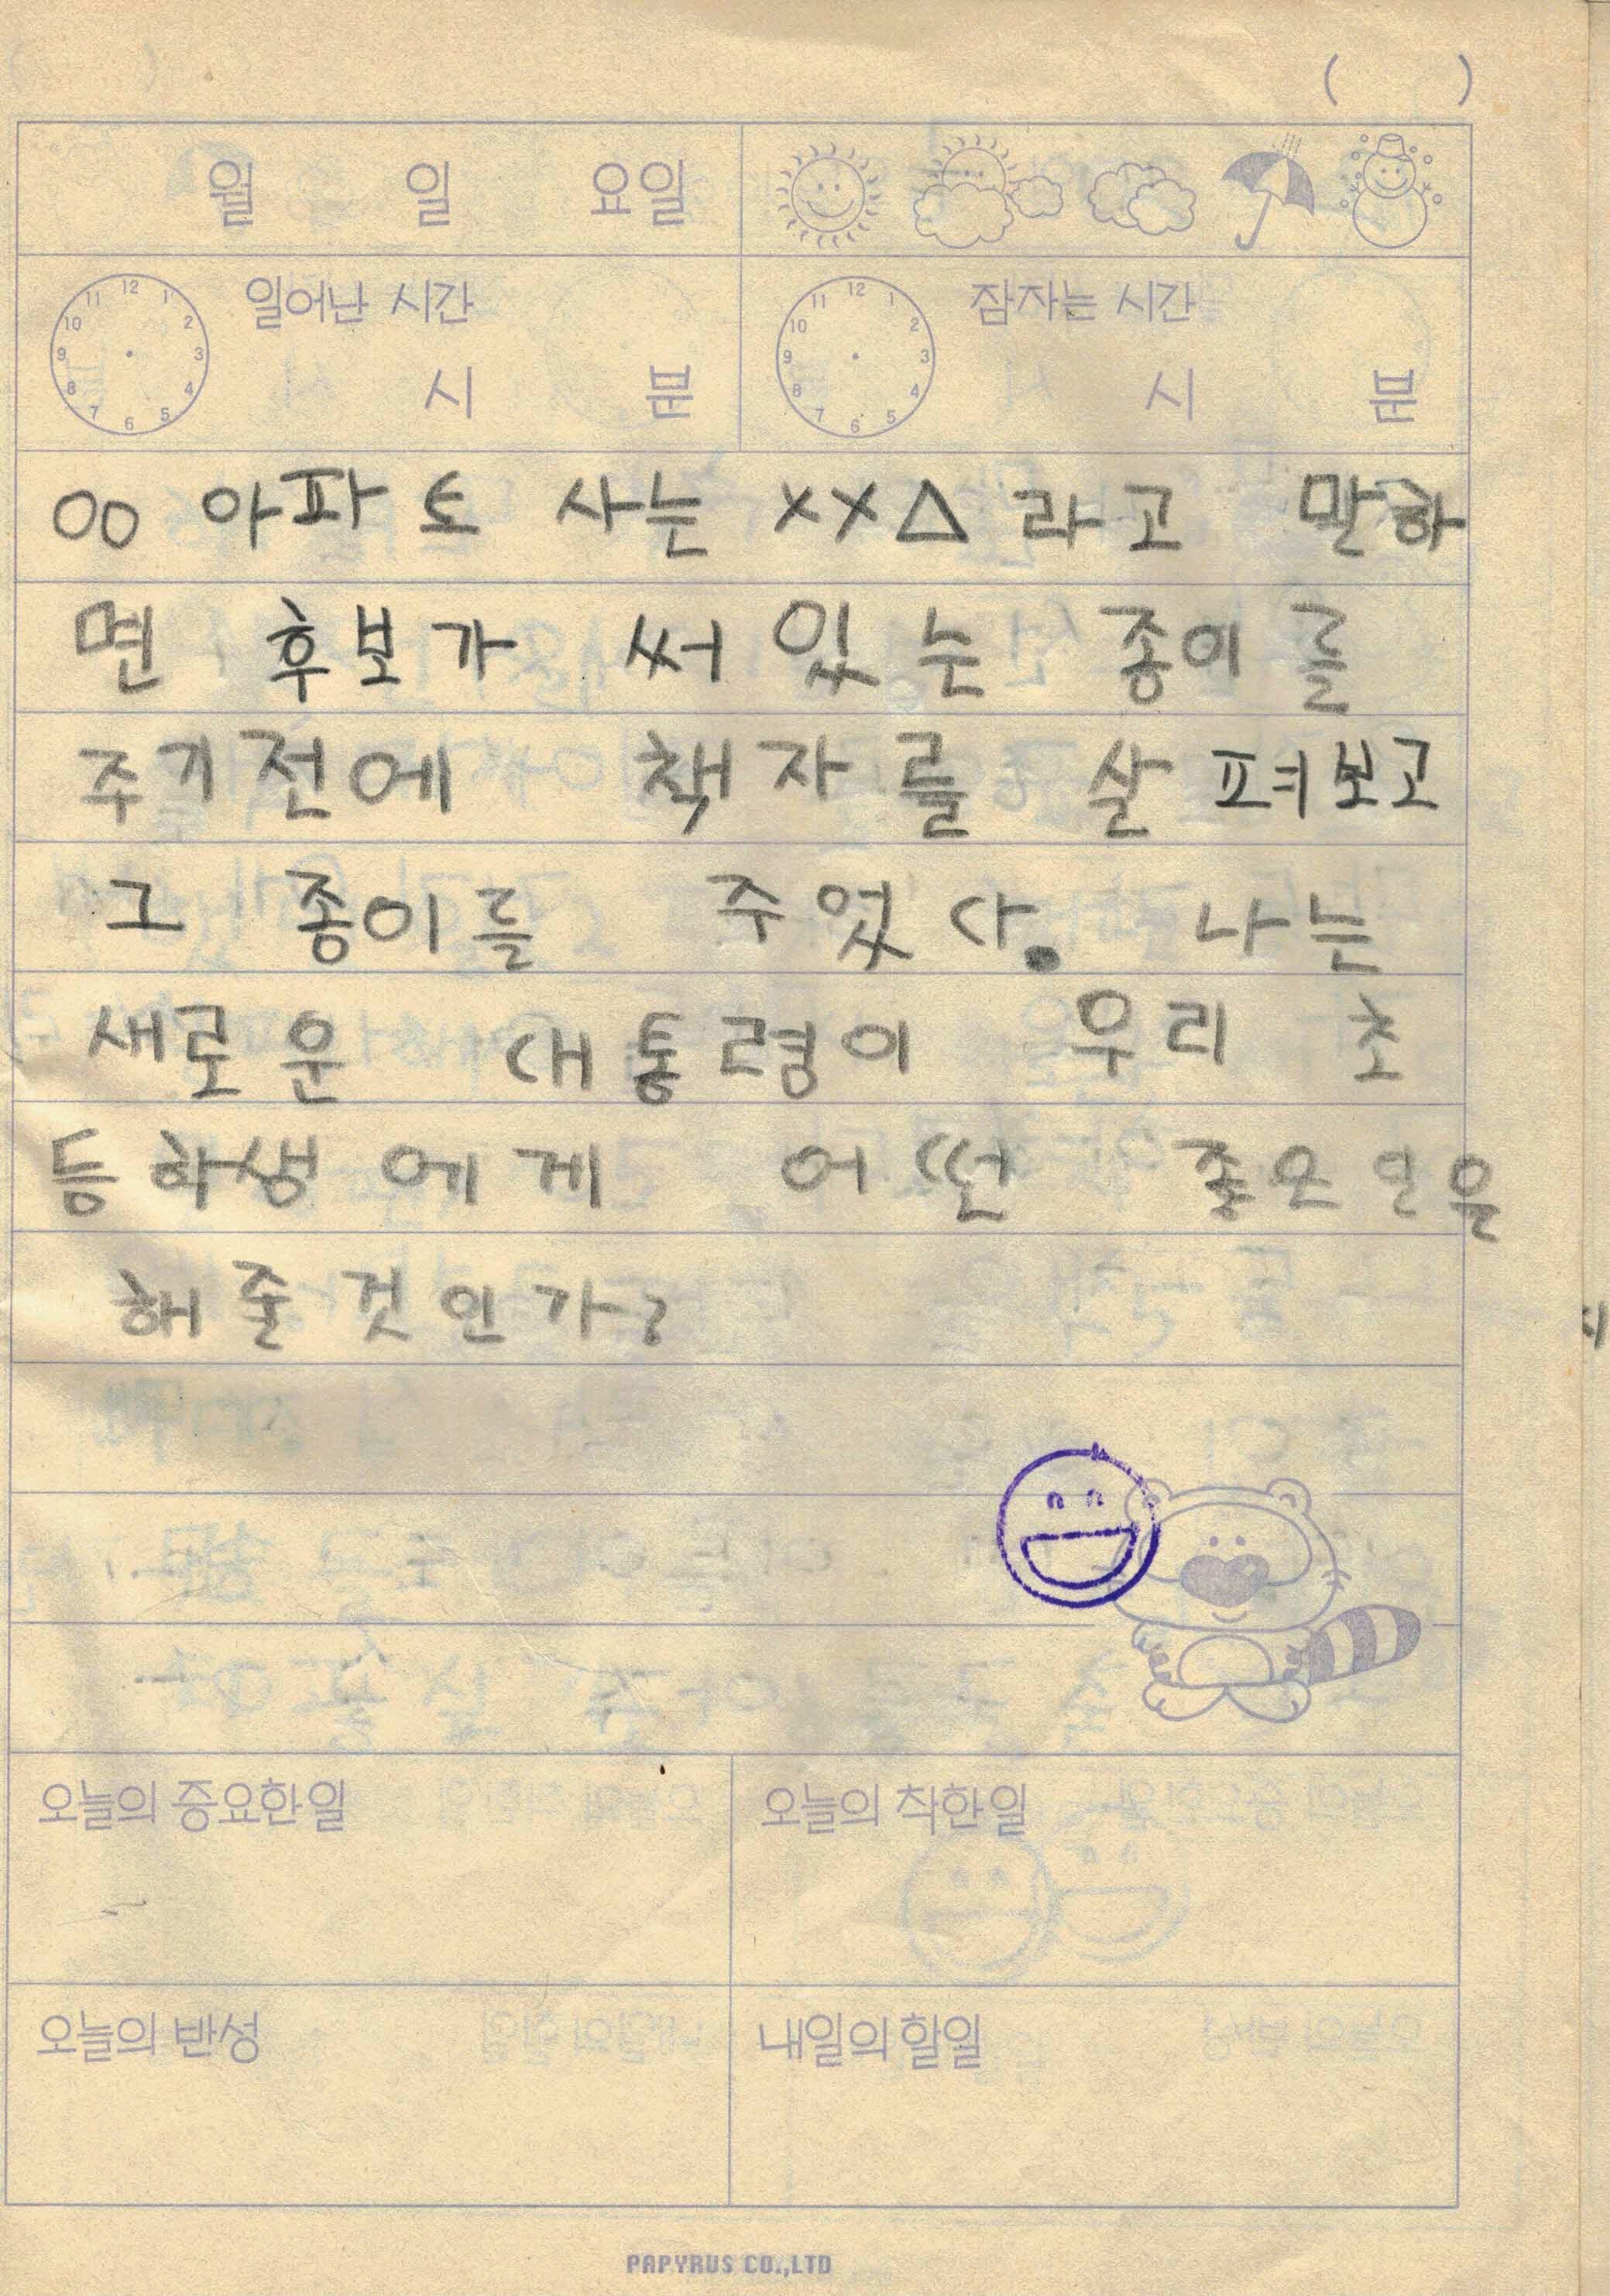 ( )
월 일 요일
일어난 시간 잠자는 시간
12 1 2 3 4 5 6 7 8 9 10 11
12 1 2 3 4 5 6 7 8 9 10 11
시 분 시 분
OO 아파토 사는 XX△ 라고 말하
면 후보가 써 있는 종이를
주기전에 책자를 살펴보고
그 종이를 주었다. 나는
새로운 대통령이 우리 초
등학생에게 어떤 좋은일을
해줄것인가?
오늘의 중요한일 오늘의 착한일
오늘의 반성 내일의 할일
PAPYRUS CO.,LTD